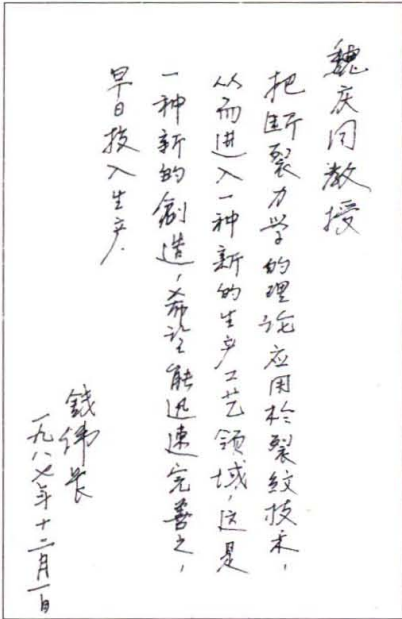 魏庆同教授
把断裂力学的理论应用于裂纹技术，
从而进入一种新的生产工艺领域，这是
一种新的創造，希望能迅速完善之，
早日投入生产。
錢偉长
一九八七年十二月一日